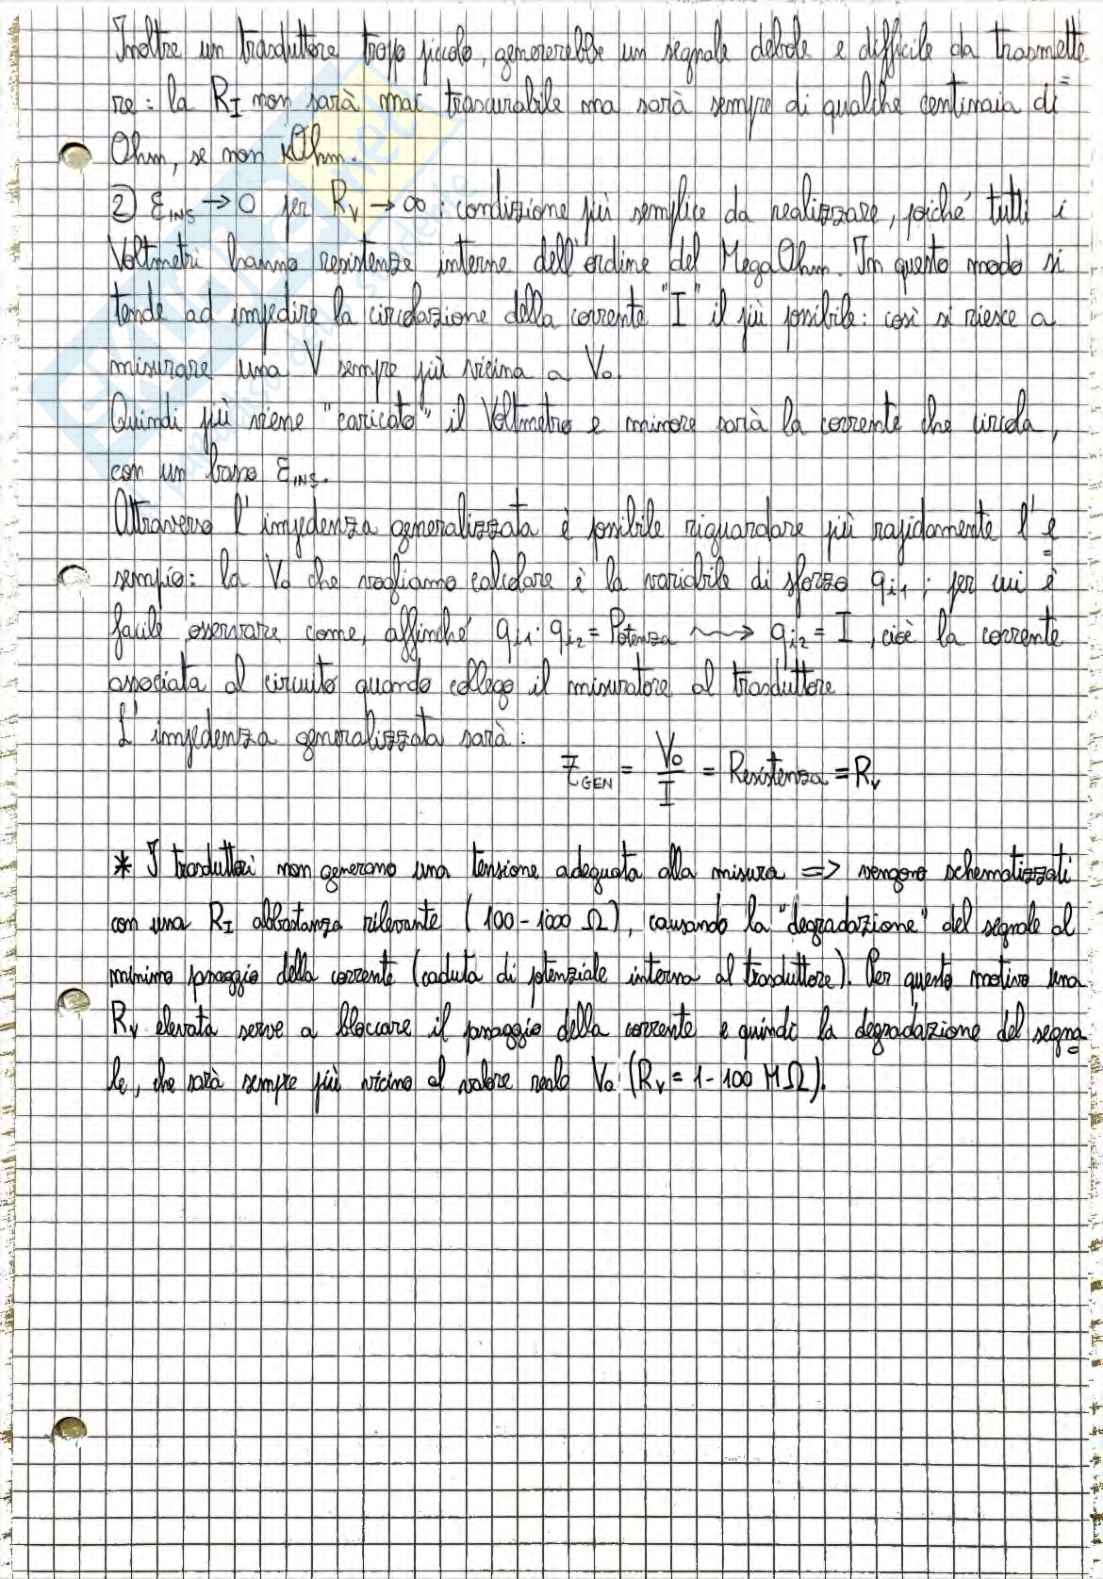 Inoltre un trasduttore troppo piccolo, genererebbe un segnale debole e difficile da trasmette
re: la R_I non sarà mai trascurabile ma sarà sempre di qualche centinaia di
Ohm, se non kOhm.
② ε_INS → 0 per R_V → ∞ : condizione più semplice da realizzare, poiché tutti i
Voltmetri hanno resistenze interne dell'ordine del MegaOhm. In questo modo si
tende ad impedire la circolazione della corrente "I" il più possibile: così si riesce a
misurare una V sempre più vicina a V₀.
Quindi più viene "caricato" il Voltmetro e minore sarà la corrente che circola,
con un basso ε_INS.
Attraverso l'impedenza generalizzata è possibile riguardare più rapidamente l'e
sempio: la V₀ che vogliamo calcolare è la variabile di sforzo q_i1; per cui è
facile osservare come, affinché q_i1 · q_i2 = Potenza ⇝ q_i2 = I, cioè la corrente
associata al circuito quando collego il misuratore al trasduttore
L'impedenza generalizzata sarà:
Z_GEN = V₀/I = Resistenza = R_V
* I trasduttori non generano una tensione adeguata alla misura => vengono schematizzati
con una R_I abbastanza rilevante (100-1000 Ω), causando la "degradazione" del segnale al
minimo passaggio della corrente (caduta di potenziale interna al trasduttore). Per questo motivo una
R_V elevata serve a bloccare il passaggio della corrente e quindi la degradazione del segna
le, che sarà sempre più vicino al valore reale V₀ (R_V = 1-100 MΩ).